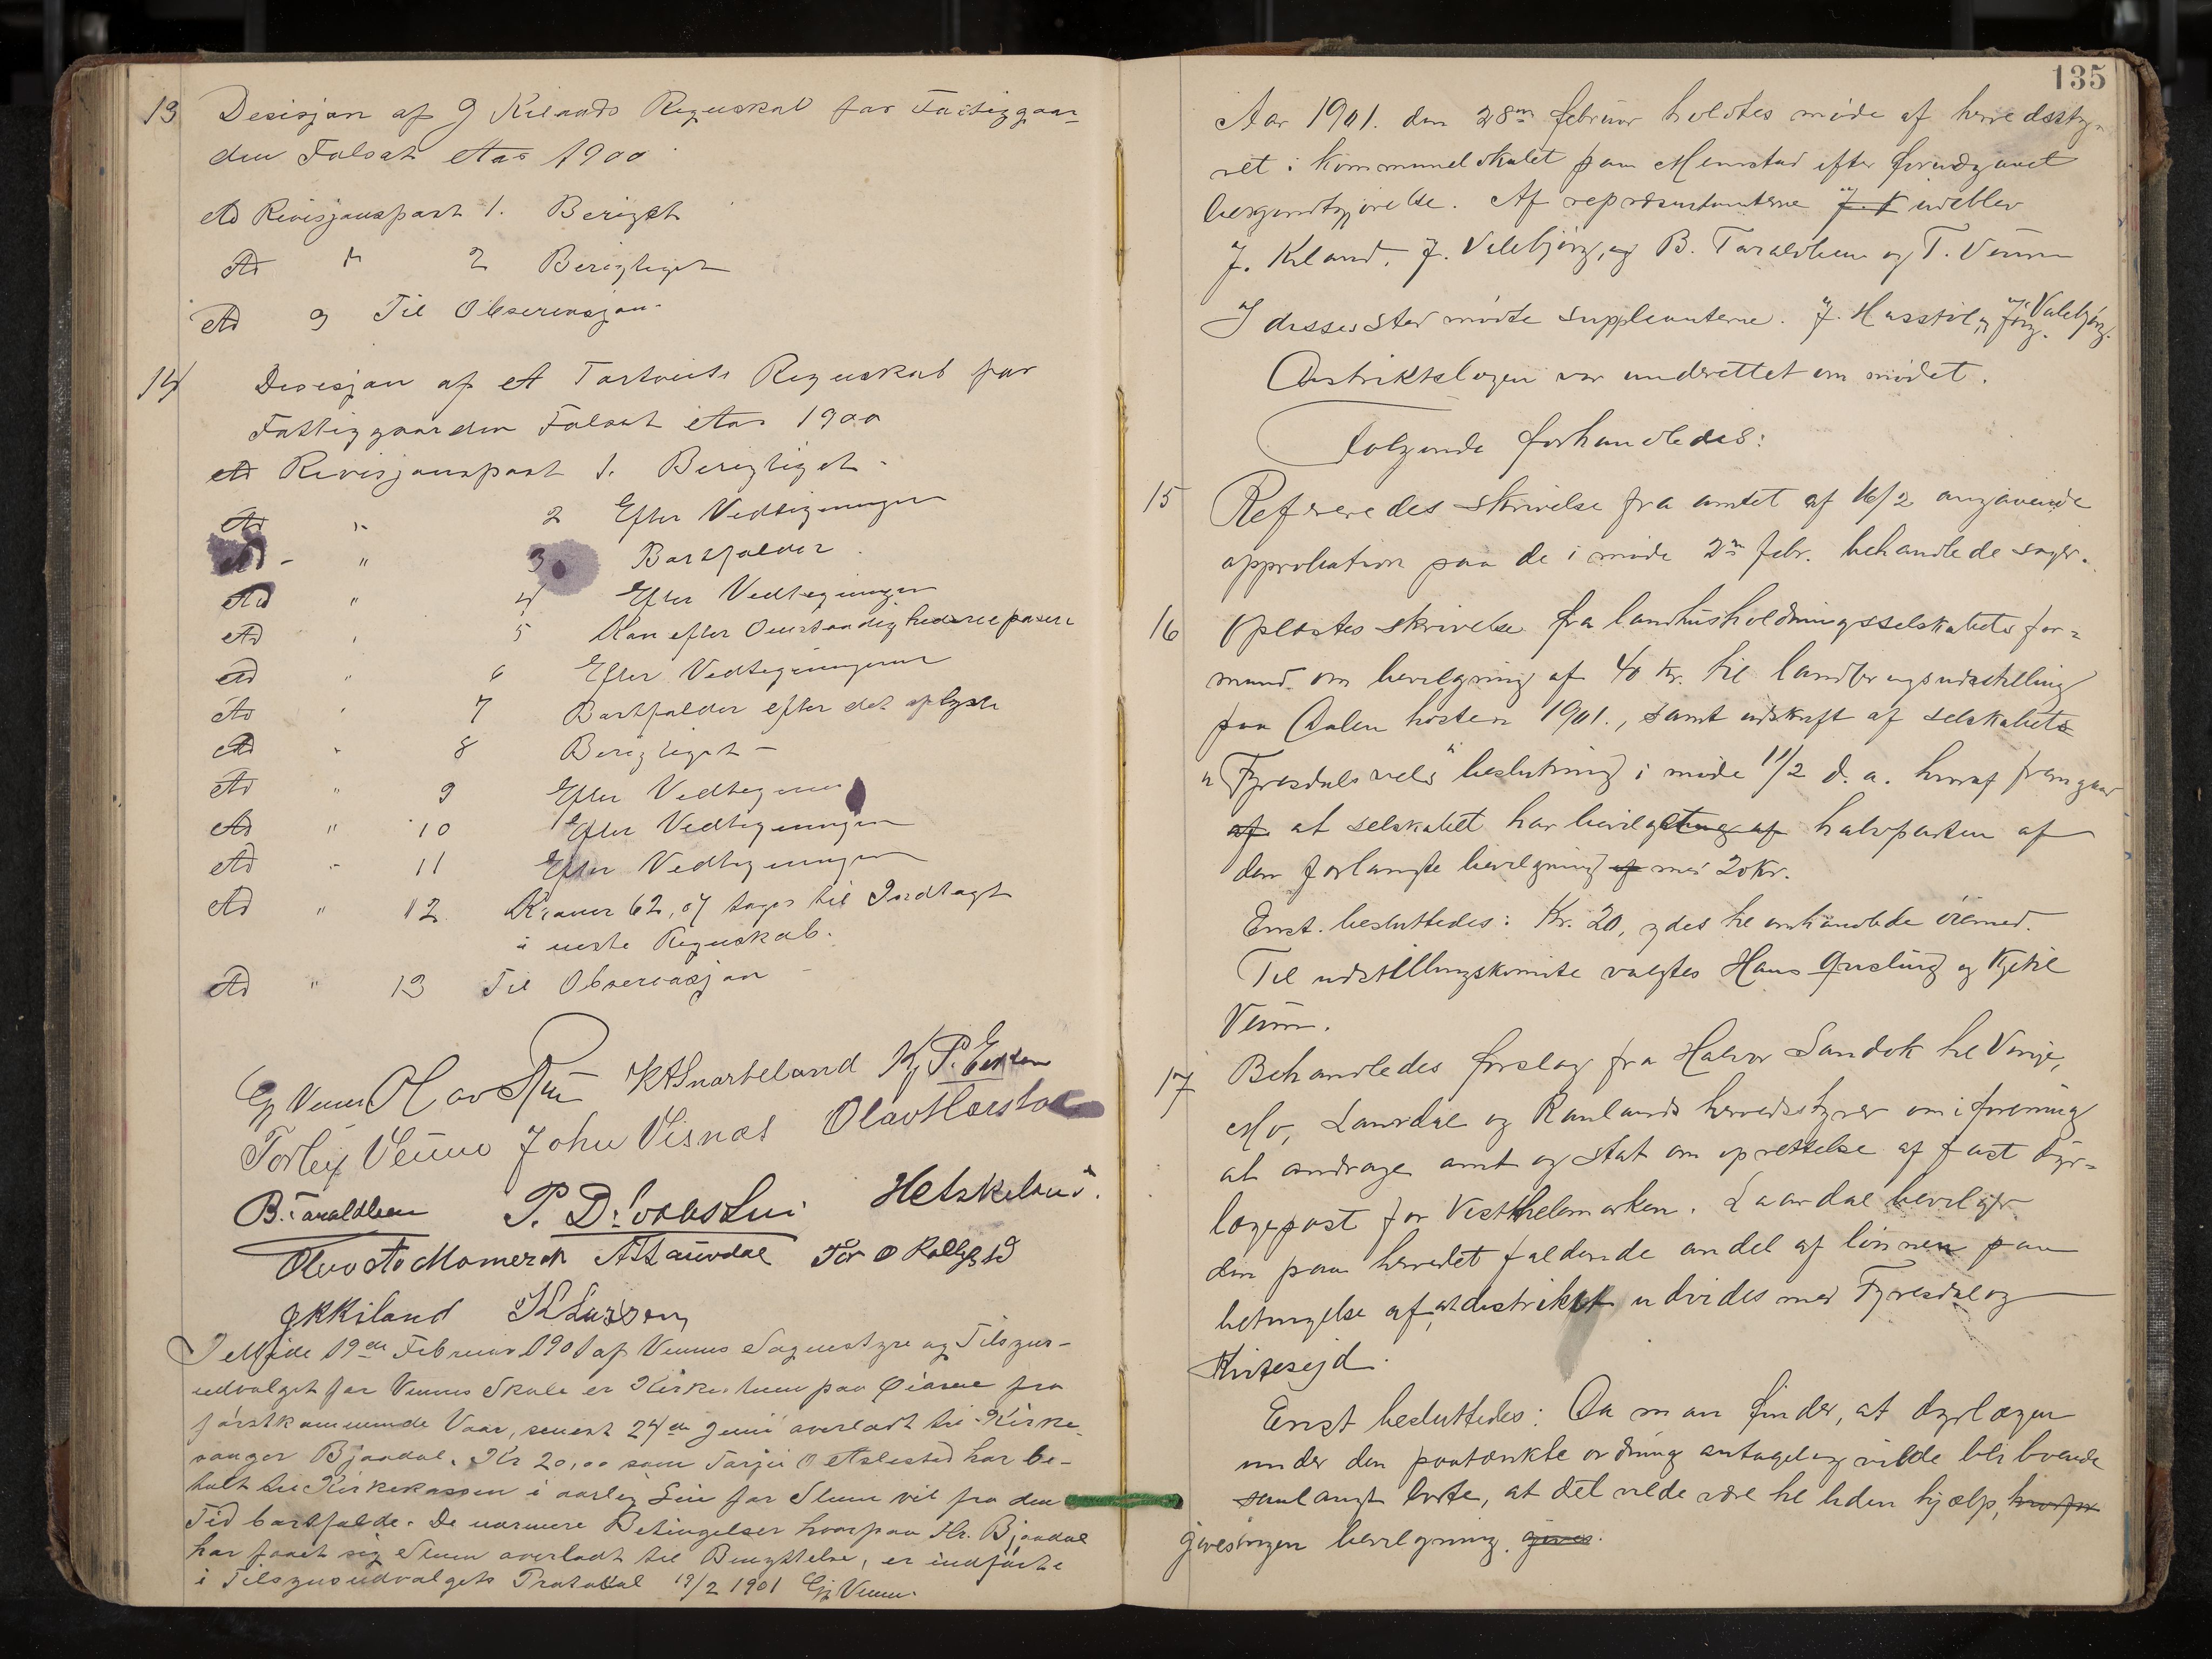 13 Desisjon af J Kilands Regnskab for Fattiggaar-
den Folsat Aar 1900
Ad Revisjonspost 1. Berigtet
Ad " 2 Berigtiget
Ad 3 Til Observasjon
14 Desisjon af A Tortveits Regnskab for
Fattiggaarden Folsat Aar 1900
Ad Revisjonspost 1. Berigtiget
Ad " 2 Efter Vedtegningen
Ad - " 3 Bortfalder
Ad " 4 Efter Vedtegningen
Ad " 5 Kan efter Omstændighederne passere
Ad " 6 Efter Vedtegningerne
Ad " 7 Bortfalder efter det oplyste
Ad " 8 Berigtiget -
Ad " 9 Efter Vedtegningen
Ad " 10 Efter Vedtegningen
Ad " 11 Efter Vedtegningen
Ad " 12 Kroner 62,07 tages til Indtægt
i neste Regnskab.
Ad " 13 Til Observasjon -
Gj Veum Olav K A Snarteland K. P.
Torleif Veum John Visnæs Olav
B. Taraldlien P. D.
Olav A Momrak A H Lauvdal Tor O
J K Kiland
I Møde 19de Februar 1901 af Veums Sognestyre og Tilsyns-
udvalget for Veums Skole er Kirkestuen paa Øiane fra
førstkommende Vaar, senest 24de Juni overladt til Kirke-
sanger Bjaadal. Kr 20,00 som Tarjei O Aslestad har be-
talt til Kirkekassen i aarlig Leie for Stuen vil fra den
Tid bortfalde. De nærmere Betingelser hvorpaa Hr. Bjaadal
har faaet sig Stuen overladt til Benyttelse, er indførte
i Tilsynsudvalgets Protokol 19/2 1901 Gj Veum.
135
Aar 1901. den 28de februar holdtes møde af herredssty-
ret i kommunelokalet paa Momrak efter forudgaaet
bekjendtgjørelse. Af repræsentanterne J. K udeblev
J. Kiland, J. Valebjørg, og B. Taraldlien og T. Veum
I disses sted mødte suppleanterne. J. og Jørg. Valebjørg.
Distriktslægen var underrettet om mødet.
Følgende forhandledes:
15 Refereredes skrivelse fra amtet af 16/2 angaaende
approbation paa de i møde 2den febr. behandlede sager.
16 Oplæstes skrivelse fra landhusholdningsselskabets for-
mand om bevilgning af 40 kr. til landbrugsudstilling
paa Dalen høsten 1901., samt udskrift af selskabets
"Fyresdals vels" beslutning i møde 11/2 d. a. hvoraf fremgaar
af at selskabet har bevilget halvparten af
den forlangte bevilgning af med 20 kr.
Enst. besluttedes: Kr. 20, ydes til omhandlede øiemed.
Til udstillingskomite valgtes Hans Qvisling og Kjetil
Veum.
17 Behandledes forslag fra Halvor Sandok til Vinje,
Mo, Laurdal og Raulands herredsstyrer om i forening
at andrage amt og stat om oprettelse af fast dyr-
lægepost for Vestthelemarken. Laardal bevilger
den paa herredet faldende andel af lønnen paa
betingelse af, at distriktet udvides med Fyresdal og
Kviteseid.
Enst besluttedes: Da man finder, at dyrlægen
under den paatænkte ordning antagelig vilde bli boende
saa langt borte, at det vilde være til liden hjælp, hvorfor
gives ingen bevilgning. gives.